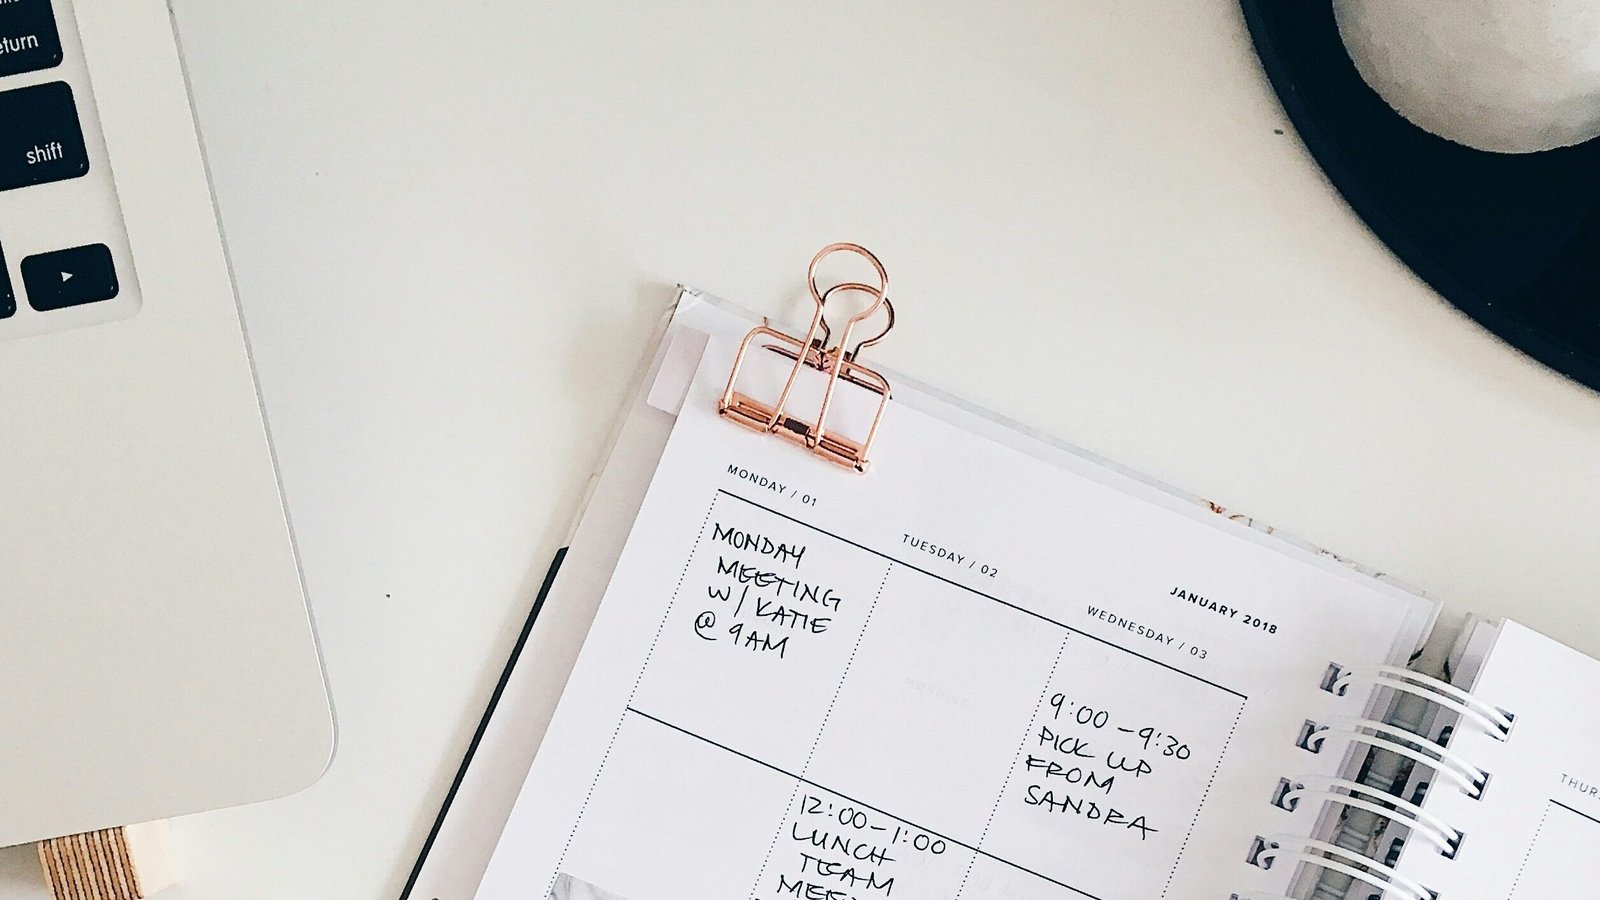 return
shift
MONDAY / 01
TUESDAY / 02
JANUARY 2018
WEDNESDAY / 03
MONDAY
MEETING
W/ KATIE
@ 9AM
9:00 - 9:30
PICK UP
FROM
SANDRA
12:00 - 1:00
LUNCH
TEAM